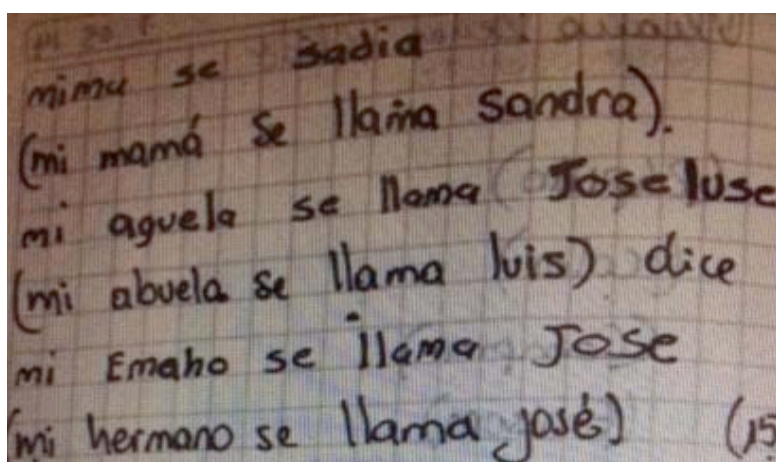 mimu se sadia
(mi mamá se llama sandra).
mi aguela se llama Jose luse
(mi abuela se llama luis) dice
mi Emaho se llama Jose
(mi hermano se llama josé) (15